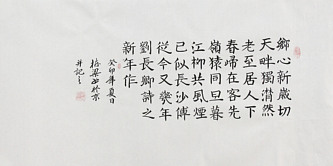 鄉心新歲切
天畔獨潸然
老至居人下
春歸在客先
嶺猿同旦暮
江柳共風煙
已似長沙傅
從今又幾年
劉長卿詩之
新年作
癸卯年夏日
於京
并記之